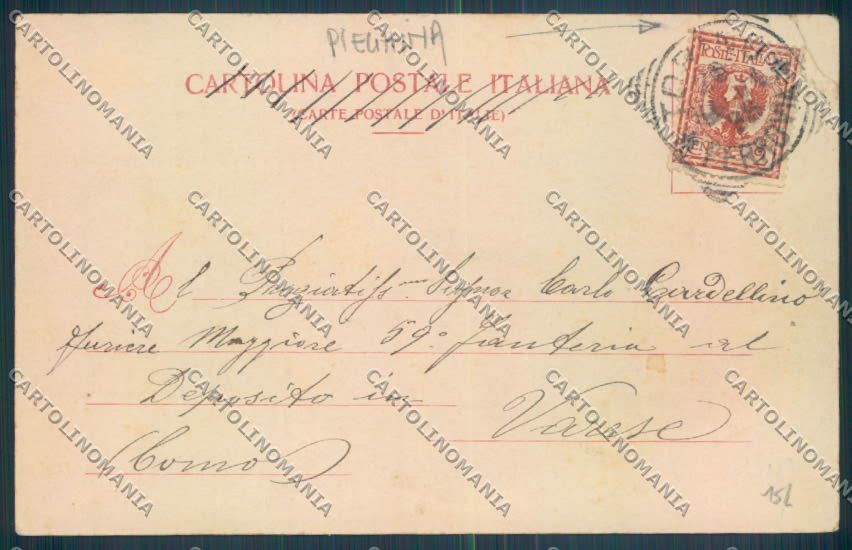 PIETRAFITTA
CARTOLINA POSTALE ITALIANA
(CARTE POSTALE D'ITALIE)
POSTE ITALIANE
2
Al Pregiatiss.mo Signor Carlo Cardellino
furiere Maggiore 59° Fanteria al
Deposito in
Varese
(Como)
15L
CARTOLINOMANIA